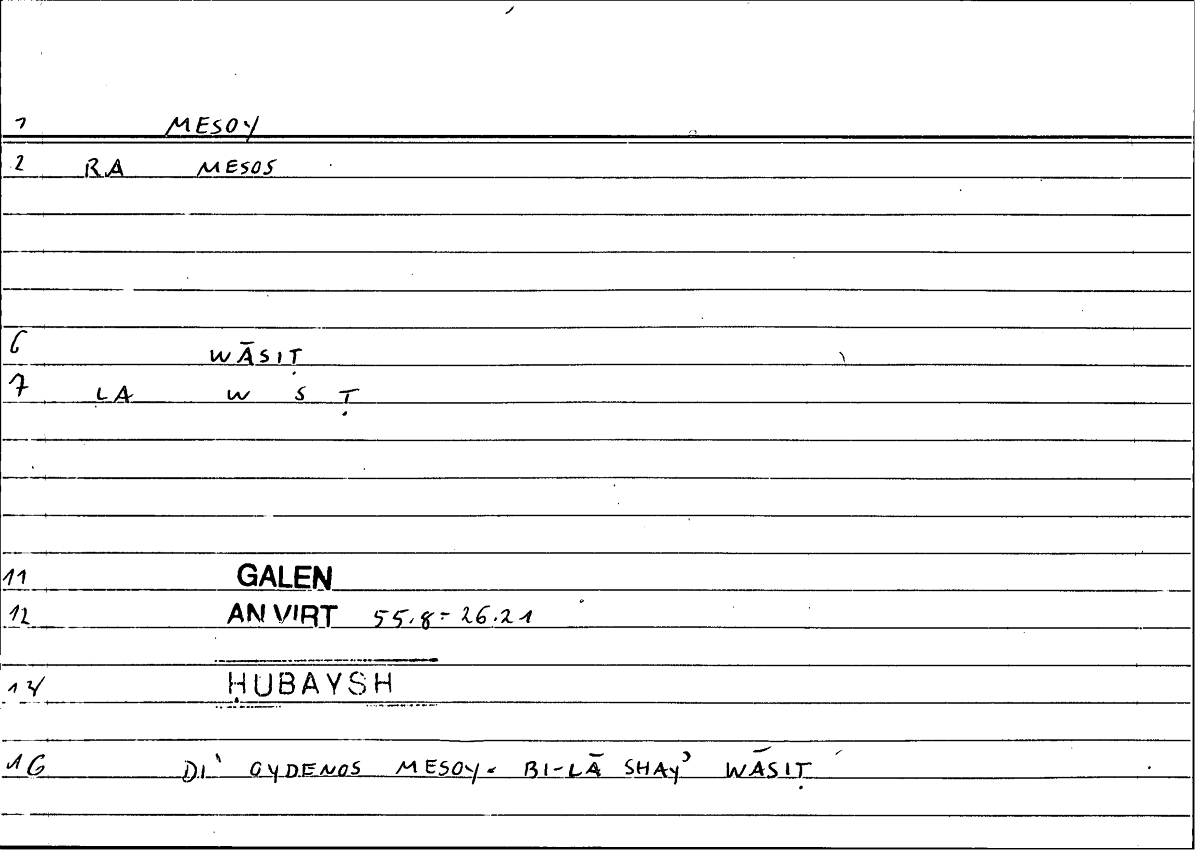 1 MESOY
2 RA MESOS
6 WĀSIṬ
7 LA W S Ṭ
11 GALEN
12 AN VIRT 55.8 = 26.21
14 ḤUBAYSH
16 DI' OYDENOS MESOY = BI-LĀ SHAY' WĀSIṬ